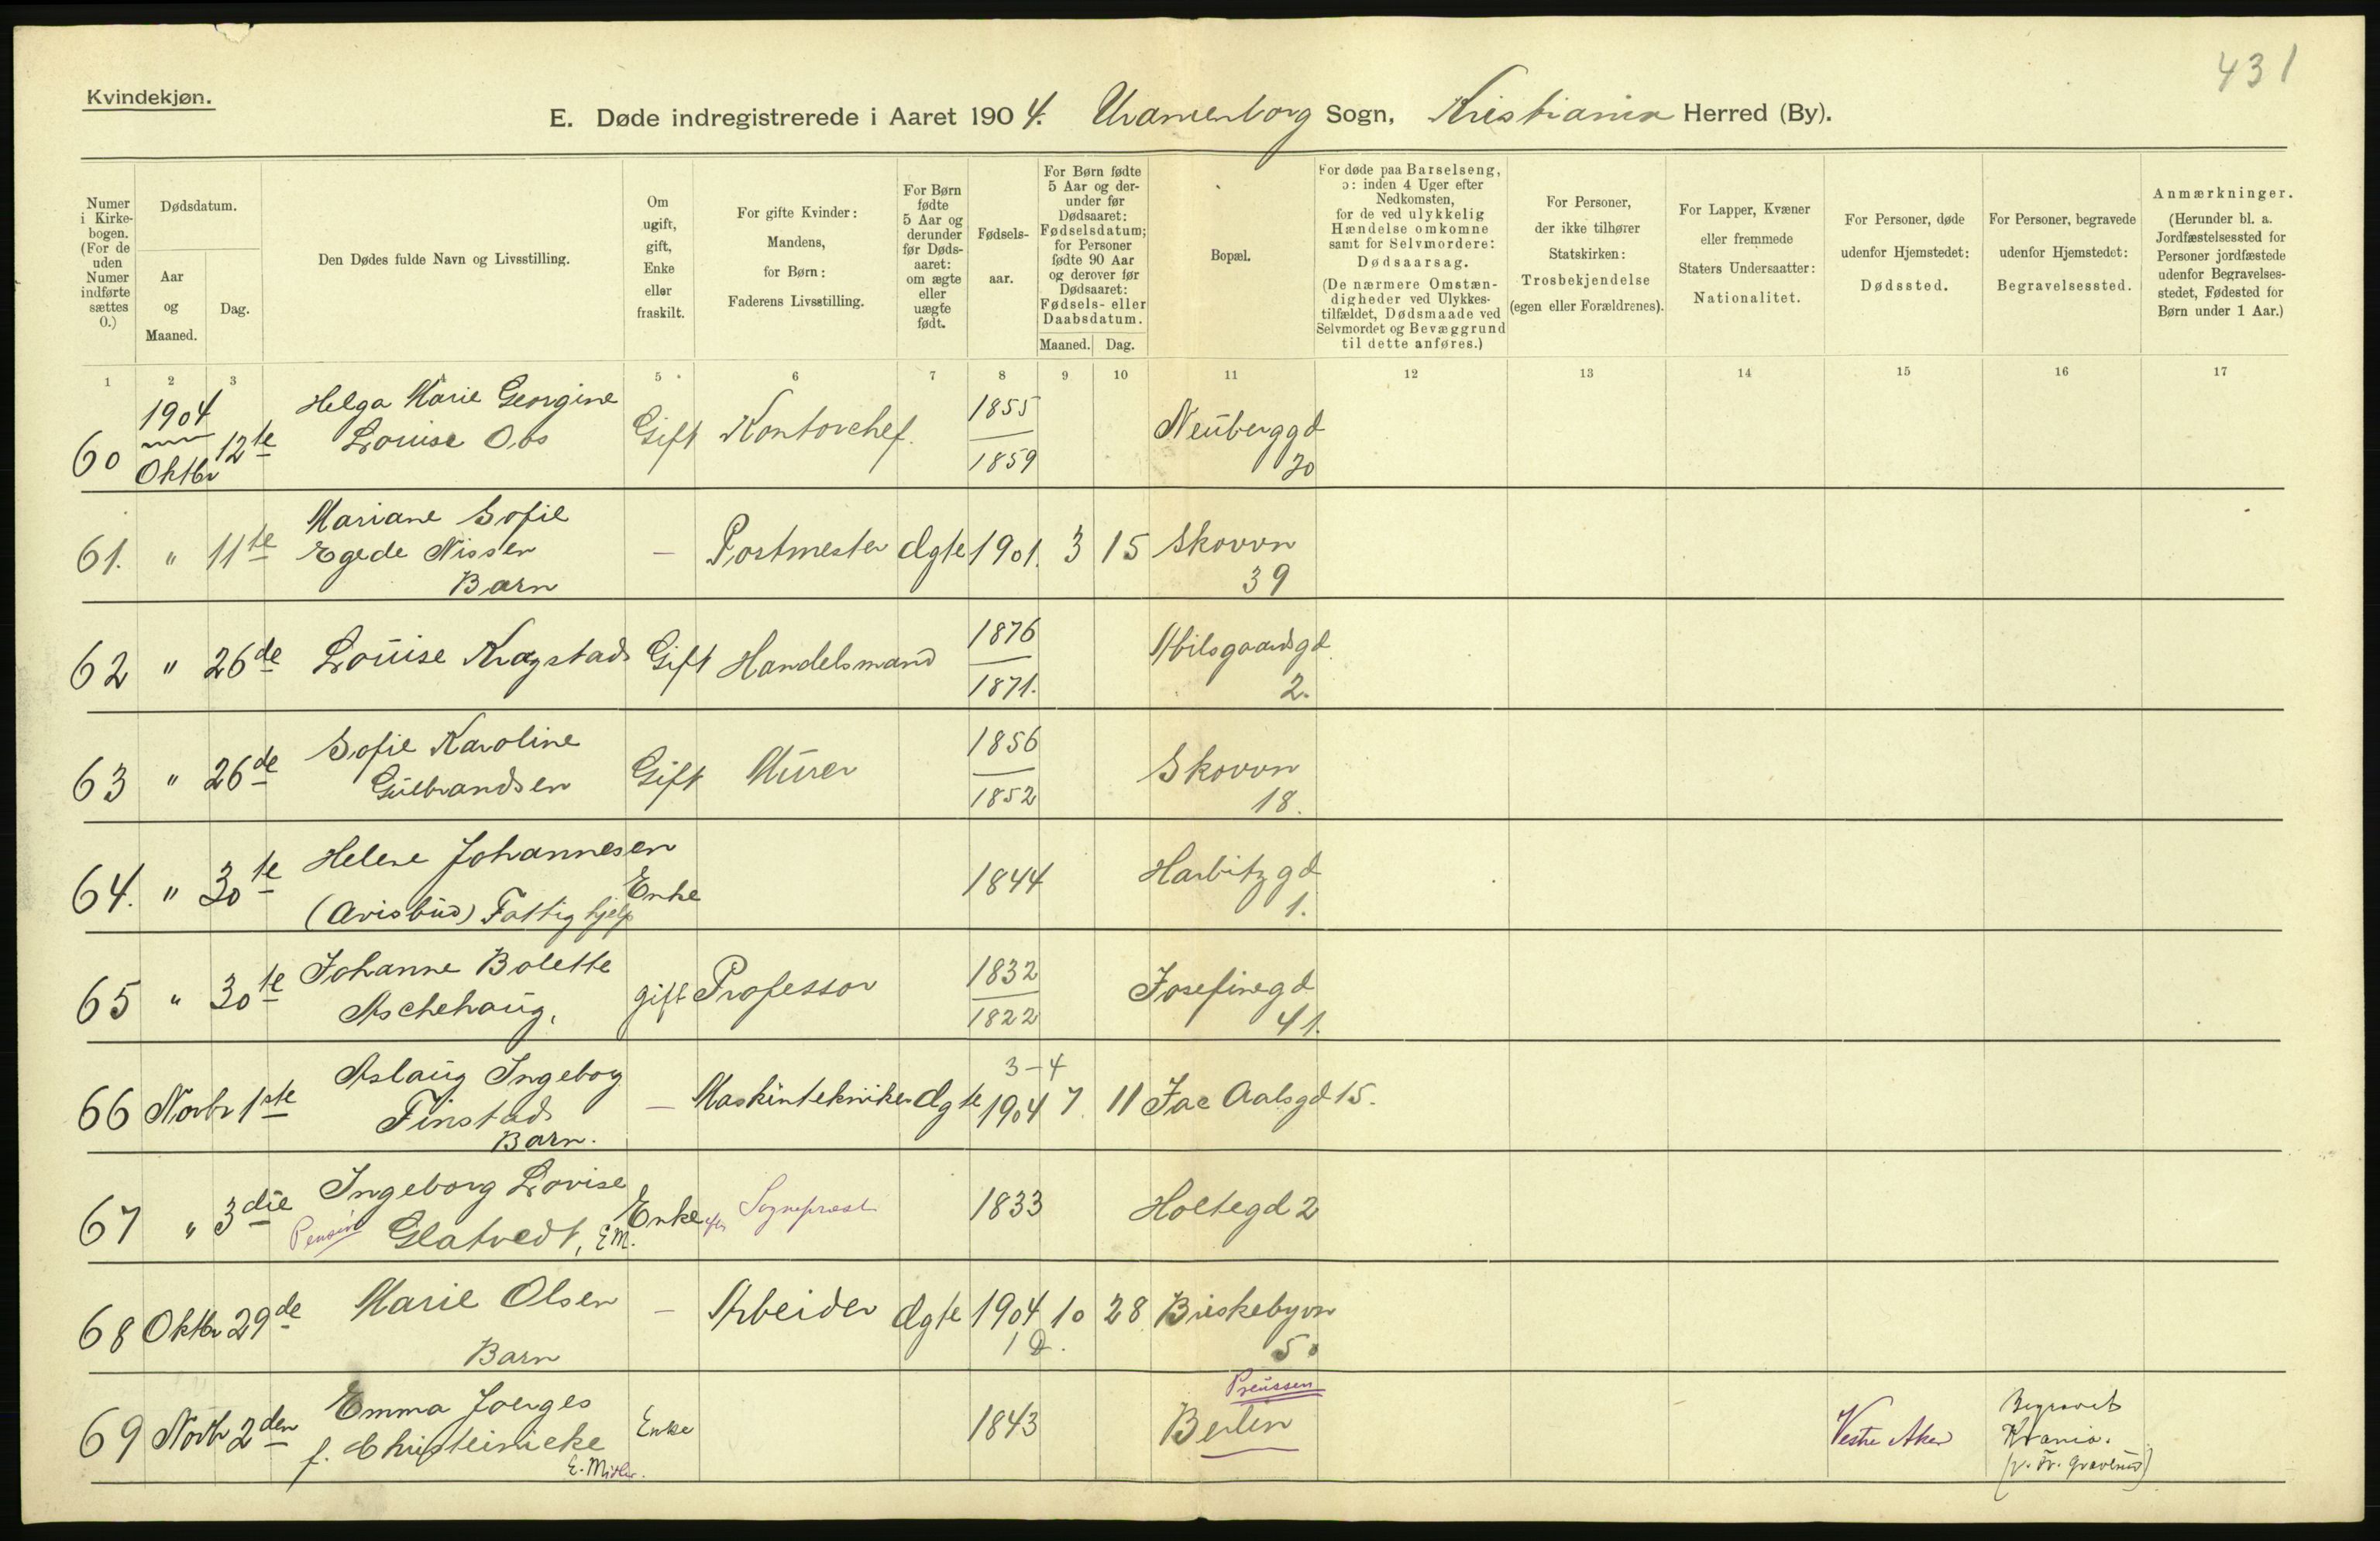 431
Kvindekjøn.
E. Døde indregistrerede i Aaret 1904. Uranienborg Sogn, Kristiania Herred (By).
Numer i Kirkebogen. (For de uden Numer indførte sættes 0.)
Dødsdatum.
Aar og Maaned.
Dag.
Den Dødes fulde Navn og Livsstilling.
Om ugift, gift, Enke eller fraskilt.
For gifte Kvinder: Mandens, for Børn: Faderens Livsstilling.
For Børn fødte 5 Aar og derunder før Dødsaaret: om ægte eller uægte født.
Fødselsaar.
For Børn fødte 5 Aar og derunder før Dødsaaret: Fødselsdatum; for Personer fødte 90 Aar og derover før Dødsaaret: Fødsels- eller Daabsdatum.
Maaned. Dag.
Bopæl.
For døde paa Barselseng, ɔ: inden 4 Uger efter Nedkomsten, for de ved ulykkelig Hændelse omkomne samt for Selvmordere: Dødsaarsag.
(De nærmere Omstændigheder ved Ulykkestilfældet, Dødsmaade ved Selvmordet og Bevæggrund til dette anføres.)
For Personer, der ikke tilhører Statskirken: Trosbekjendelse (egen eller Forældrenes).
For Lapper, Kvæner eller fremmede Staters Undersaatter: Nationalitet.
For Personer, døde udenfor Hjemstedet: Dødssted.
For Personer, begravede udenfor Hjemstedet: Begravelsessted.
Anmærkninger. (Herunder bl. a. Jordfæstelsessted for Personer jordfæstede udenfor Begravelsesstedet, Fødested for Børn under 1 Aar.)
1 2 3 5 6 7 8 9 10 11 12 13 14 15 16 17
60 1904 Oktbr 12te Helga Marie Georgine Louise Obs Gift Kontorchef. 1855 1859 Neuberggd 30
61. " 11te Mariane Sofie Egede Nissen Barn — Postmester Ægte 1901. 3 15 Skovvn 39
62 " 26de Louise Kragstad Gift Handelsmand 1876 1871. Abilsgaardsgd 2.
63 " 26de Sofie Karoline Gulbrandsen Gift Murer 1856 1852 Skovvn 18.
64. " 30te Helene Johannesen (Avisbud) Fattighjelp Enke 1844 Harbitzgd 1.
65 " 30te Johanne Bolette Aschehoug. gift Professor 1832 1822 Josefinegd 41.
66 Novbr 1ste Aslaug Ingebog Finstad Barn. — Maskintekniker Ægte 3-4 1904 7. 11 Jac Aalsgd 15.
67 " 3die Ingeborg Lovise Glatvedt, E.M. Pension Enke efter Sogneprest 1833 Holtegd 2
68 Oktbr 29de Marie Olsen Barn — Arbeider Ægte 1904 1 D. 10 28 Briskebyvn 5.
69 Novbr 2den Emma Joerges f. Christeinicke E. Midler. Enke 1843 Preussen Berlin Vestre Aker Begravet Krania. (v. Fr. Gravlund)